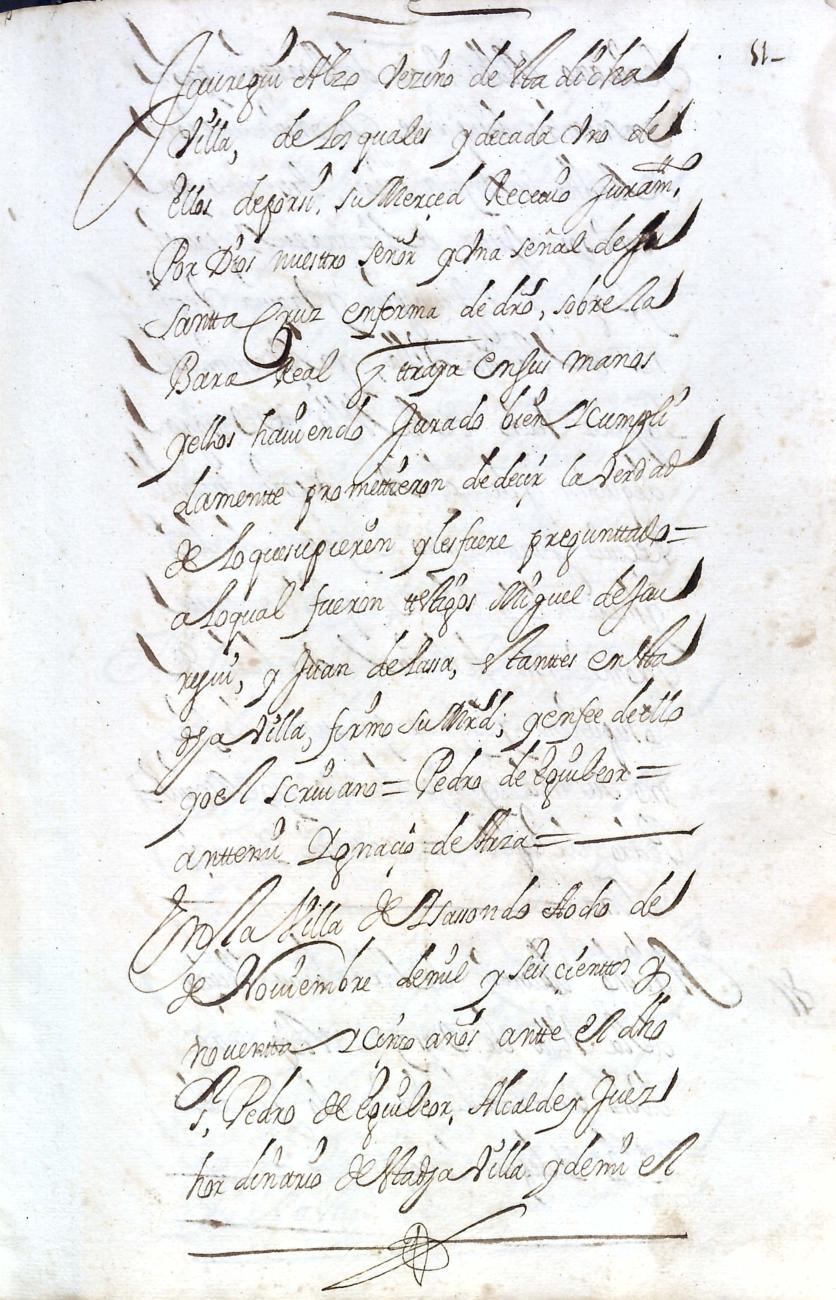 51-
Jauregui Alzo Vezino de esta dicha
Villa, de los quales y de cada Vno de
ellos de porsi, su Merced Receuio Juram.
Por Dios nuestro señor y Vna señal de su
Santta Cruz en forma de dro, sobre la
Bara Real q ttraya en sus manos
y ellos hauiendo Jurado bien Y cumpli
damentte promettieron de decir la Verdad
de lo que supieren y les fuere preguntado=
a lo qual fueron ttestigos Miguel de Jau
regui, y Juan de Lasa, estanttes en esta
dha Villa, firmo su Mrd; y en fee de ello
yo el scriuano= Pedro de Eguibeor=
anttemi Ygnacio de Arza=
En la Villa de Ysasondo A ocho de
de Nouiembre de mil y seis cienttos y
nouentta Y Cinco años antte el dho
Sr, Pedro de Eguibeor, Alcalde y Juez
hordinario de esta dha Villa y de mi el